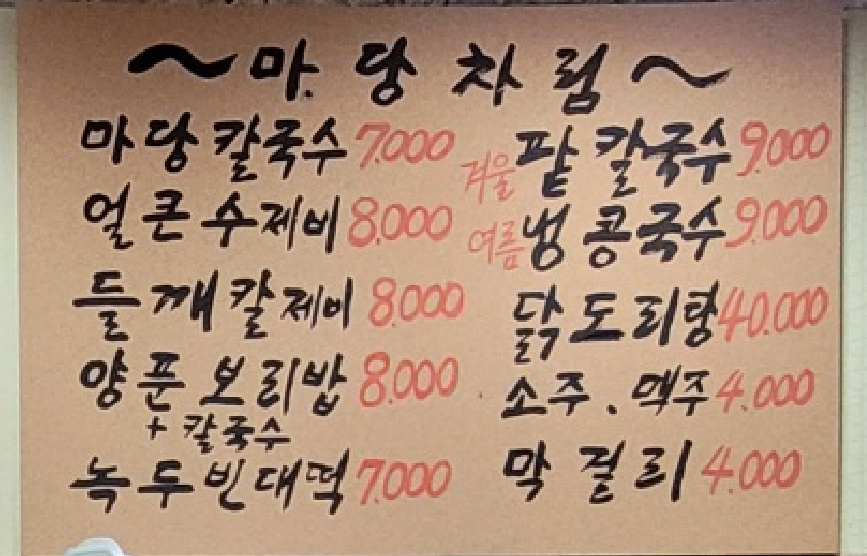 ~마당차림~
마당칼국수 7.000
얼큰수제비 8.000
들깨칼제비 8.000
양푼보리밥 8.000
+ 칼국수
녹두빈대떡 7.000
겨울 팥칼국수 9.000
여름 냉콩국수 9.000
닭도리탕 40.000
소주.맥주 4.000
막걸리 4.000